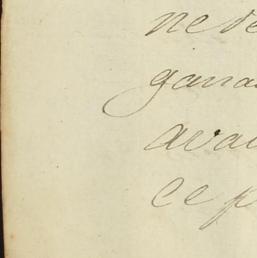 ne de
gana
avai
ce p